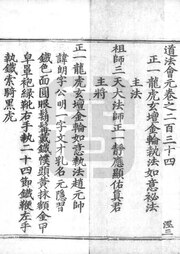 道法會元卷之二百三十四
正一龍虎玄壇金輪執法如意祕法
主法
祖師三天大法師正一靜應顯佑真君
主將
正一龍虎玄壇金輪如意執法趙元帥
諱朗字公明一字文才乳名元隱習
鐵色面圓眼
鐵幞頭黃抹額金甲
皁羅袍綠靴右手執二十四節鐵鞭左手
執鐵索騎黑虎